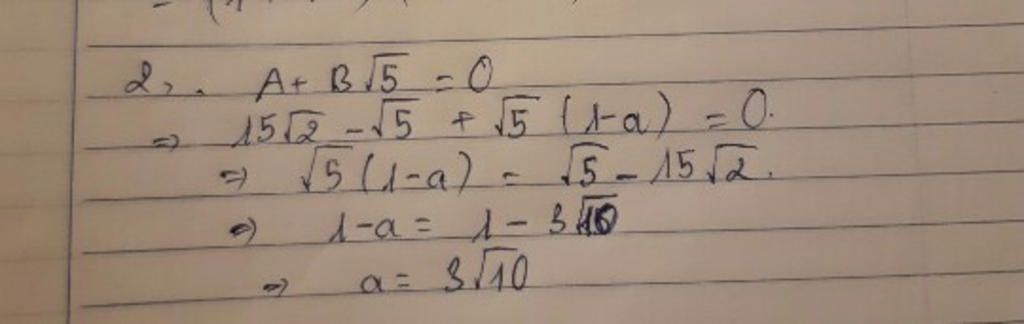 2, . A + B√5 = 0
⇒ 15√2 - √5 + √5 (1-a) = 0.
⇒ √5 (1-a) = √5 - 15√2.
⇒ 1-a = 1 - 3√10
⇒ a = 3√10